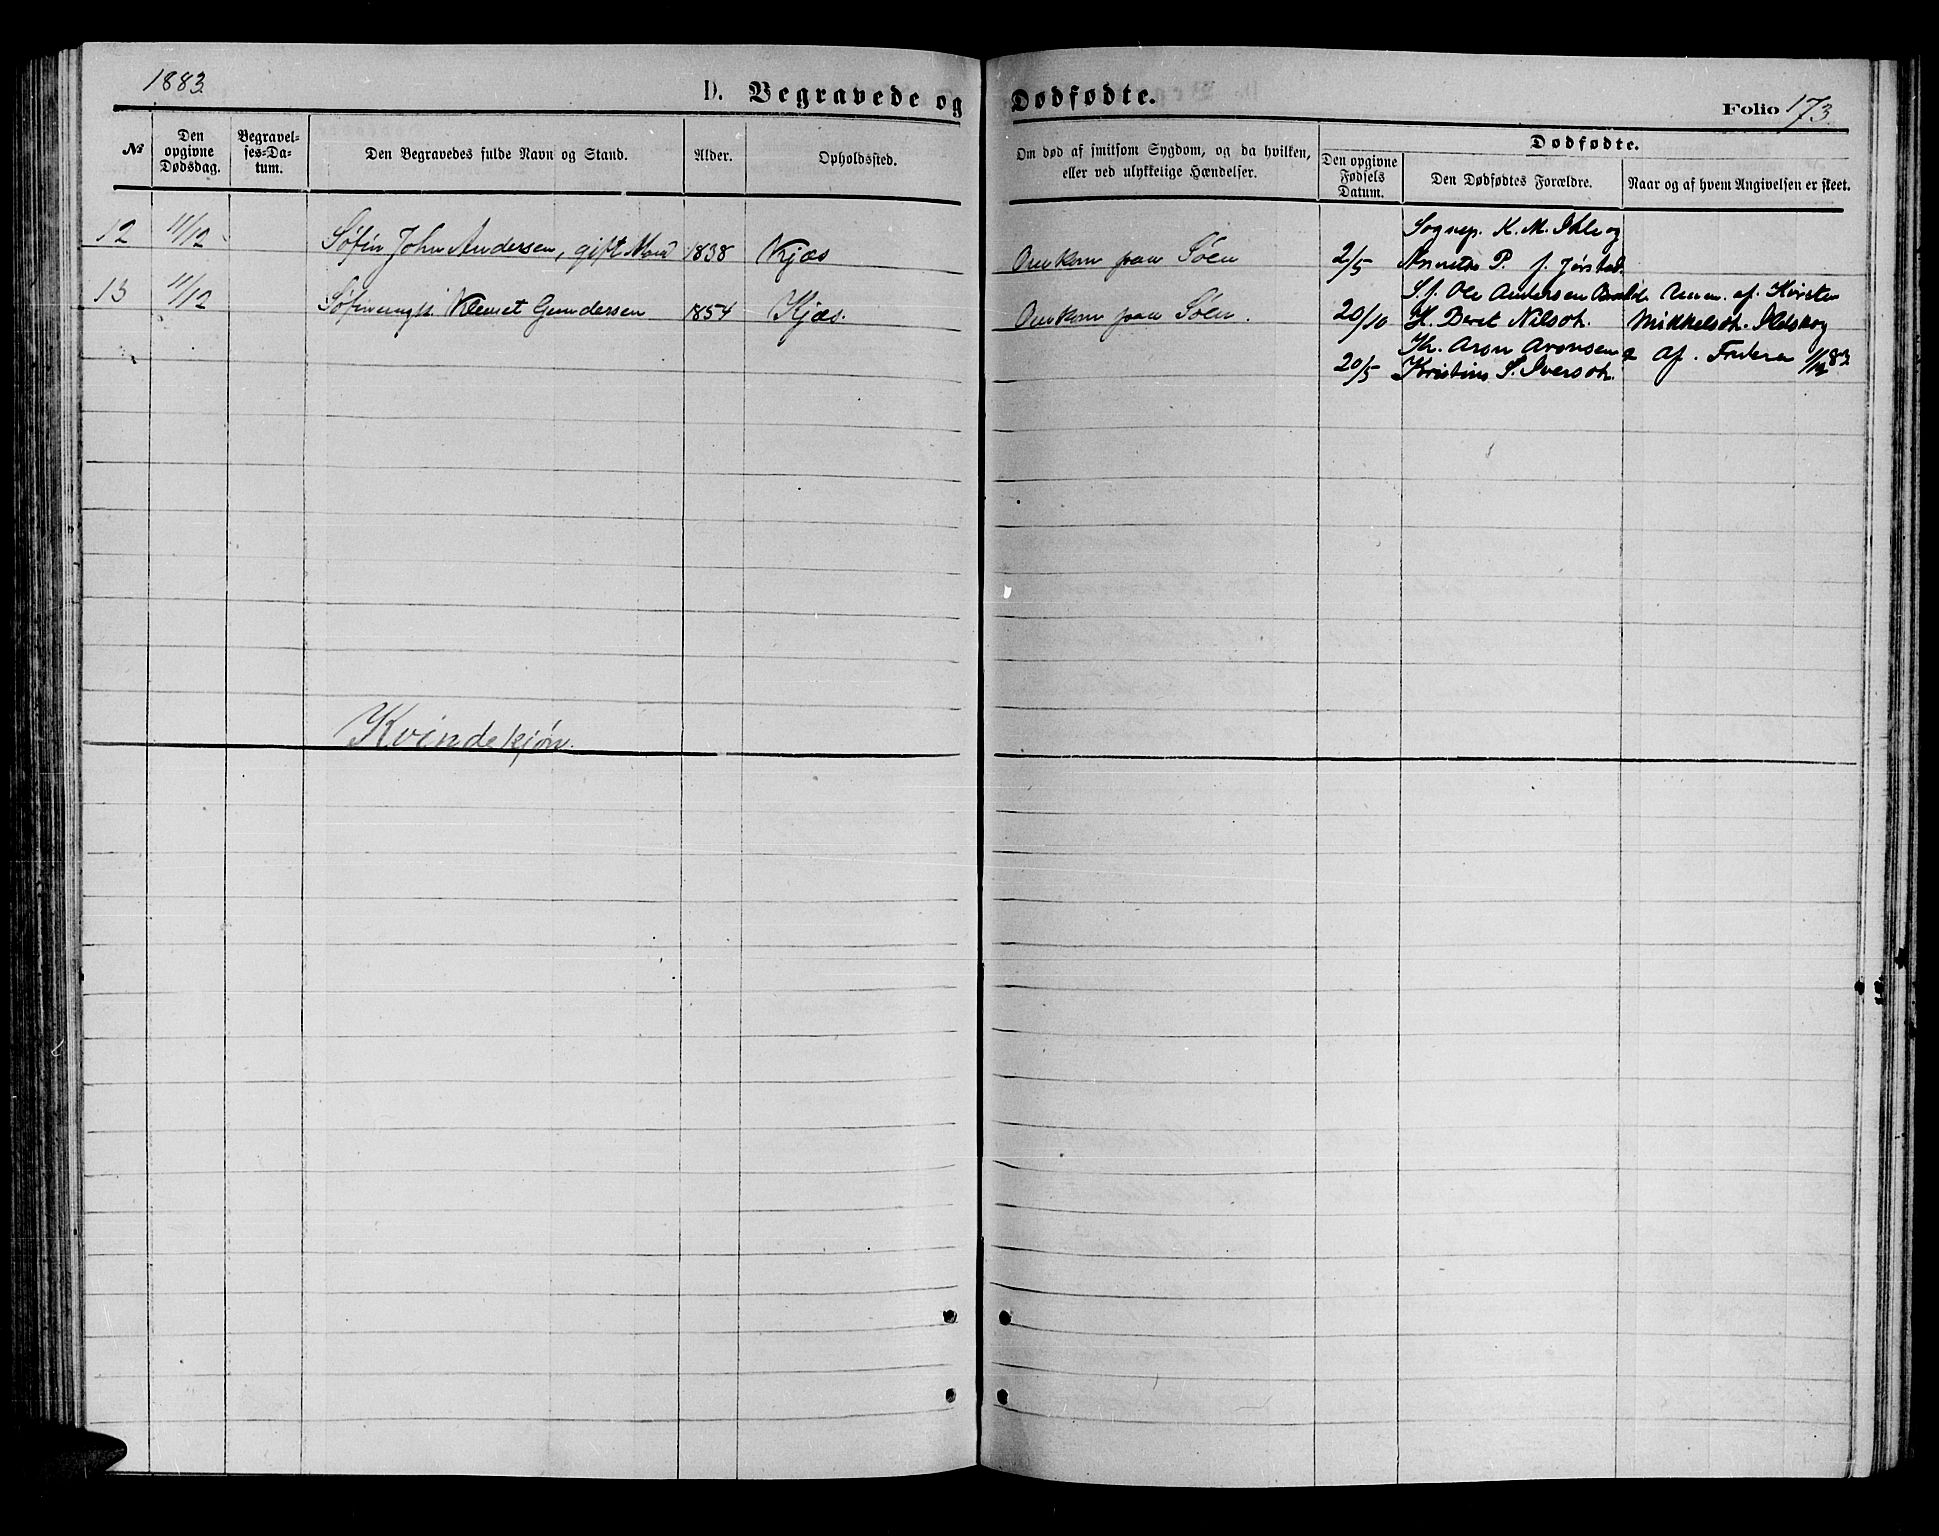 1883
D. Begravede og Dødfødte.
Folio 173.
№
Den opgivne Dødsdag.
Begravelses-Datum.
Den Begravedes fulde Navn og Stand.
Alder.
Opholdssted.
Om død af smitsom Sygdom, og da hvilken, eller ved ulykkelige Hændelser.
Dødfødte.
Den opgivne Fødsels Datum.
Den Dødfødtes Forældre.
Naar og af hvem Angivelsen er skeet.
12 11/12 Søfin John Andersen, gift Mand 1838 Kjæs Omkom paa Søen
13 11/12 Søfinungk. Klemet Gundersen 1854 Kjæs. Omkom paa Søen.
2/5 Sognep. K. M. Ihle og
P. f. Jørstad
20/10 S.f. Ole Andersen Anm. af. Kirsten
H. Beret Nilsdt. Mikkelsdt.
20/5 Kv. Aron Aronsen & af. Faderen 1/12 83
Kristine S. Iversdt.
Kvindekjøn.